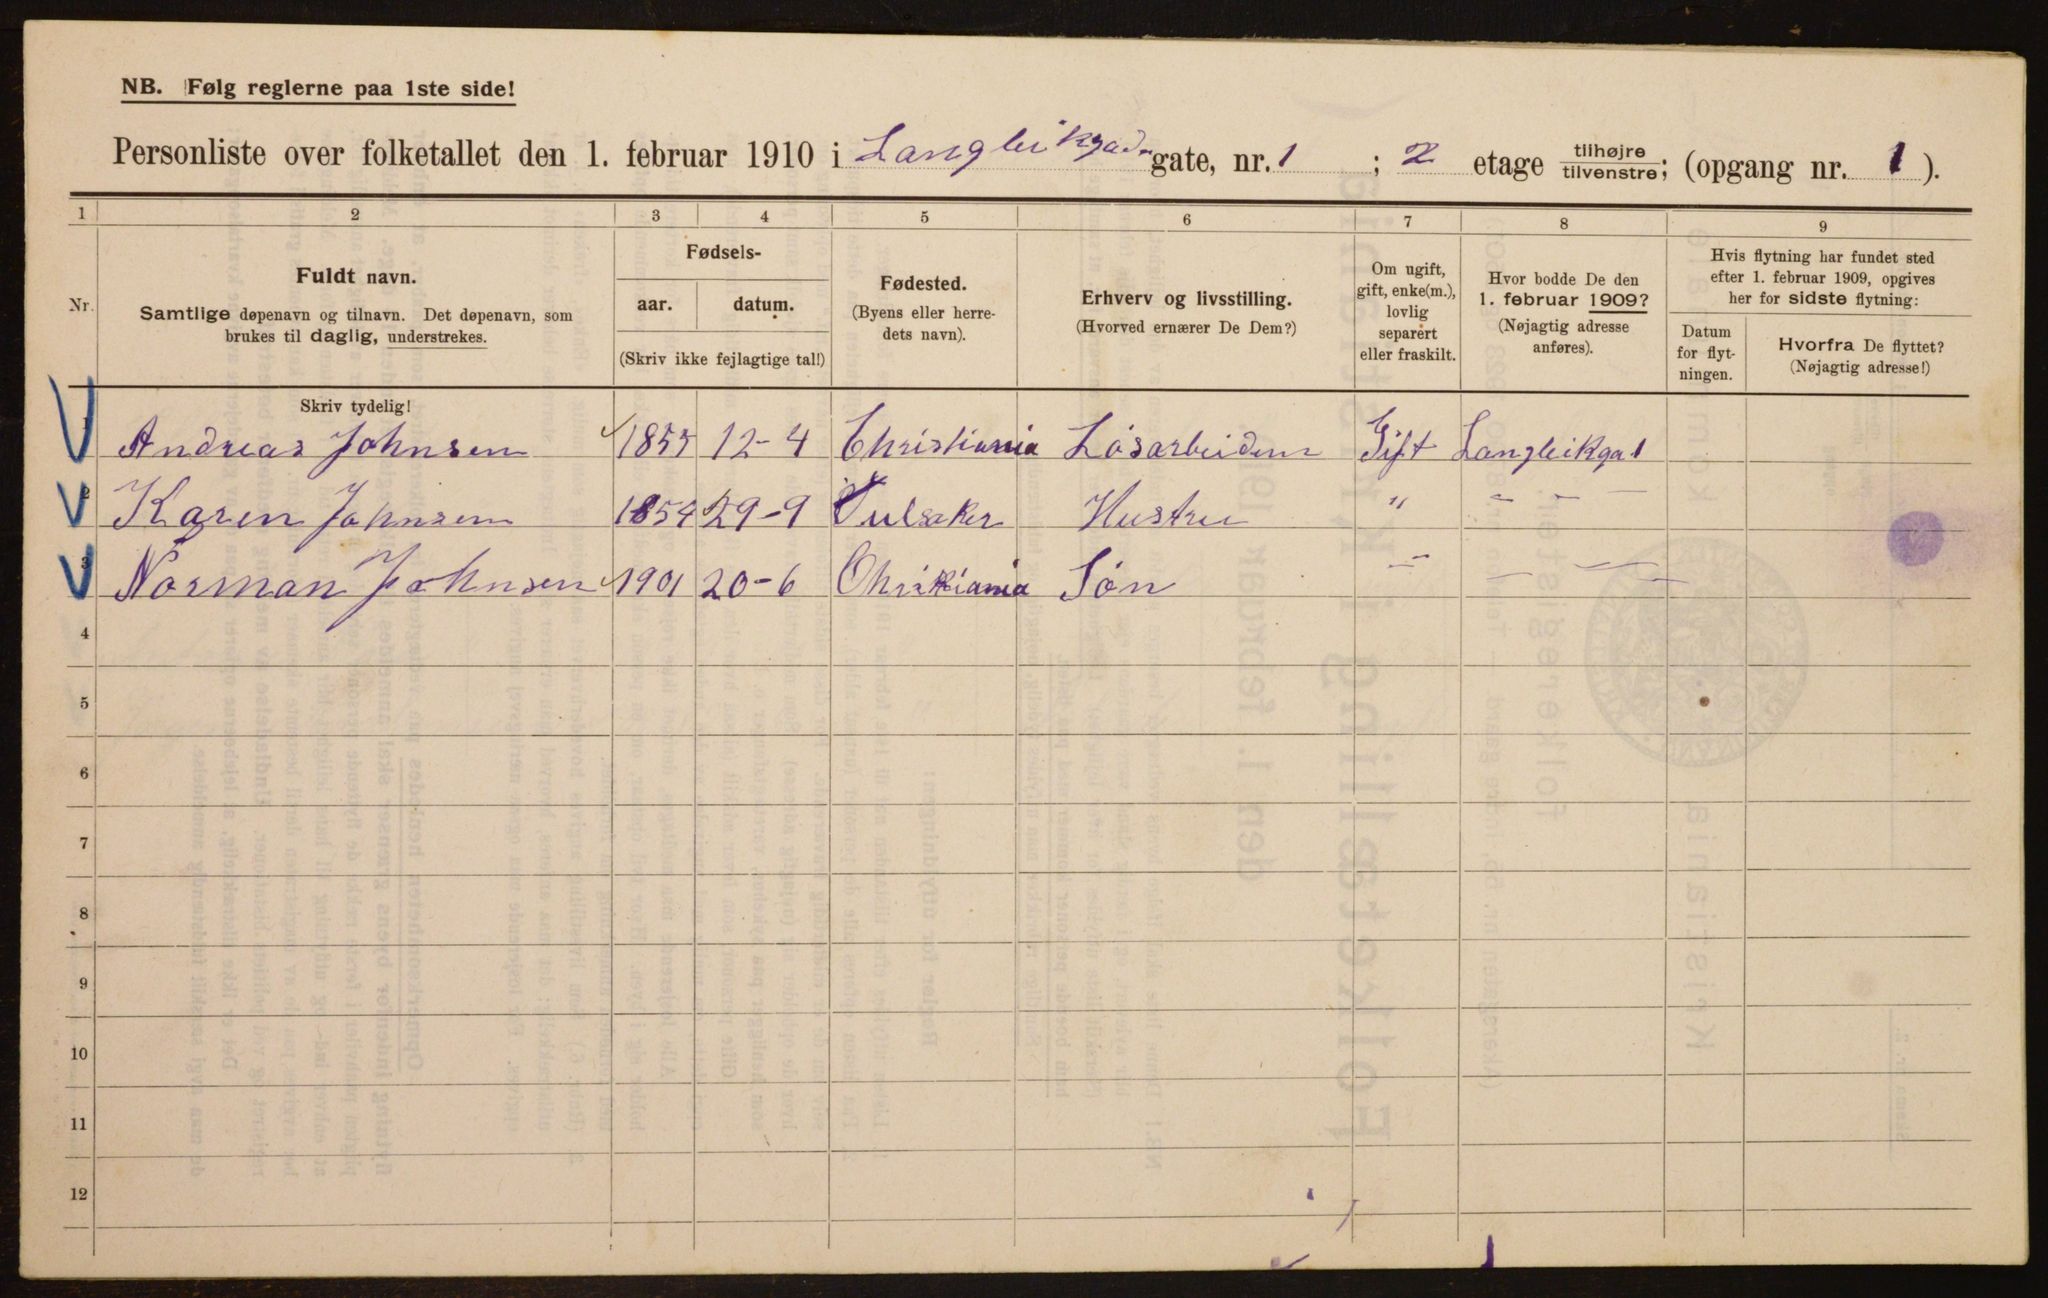 NB. Følg reglerne paa 1ste side!
Personliste over folketallet den 1. februar 1910 i Langleikgaden gate, nr. 1 ; 2 etage tilhøjre/tilvenstre; (opgang nr. 1 ).
1 2 3 4 5 6 7 8 9
Nr.
Fuldt navn.
Samtlige døpenavn og tilnavn. Det døpenavn, som
brukes til daglig, understrekes.
Fødsels-
aar. datum.
(Skriv ikke fejlagtige tal!)
Fødested.
(Byens eller herre-
dets navn).
Erhverv og livsstilling.
(Hvorved ernærer De Dem?)
Om ugift,
gift, enke(m.),
lovlig
separert
eller fraskilt.
Hvor bodde De den
1. februar 1909?
(Nøjagtig adresse
anføres).
Hvis flytning har fundet sted
efter 1. februar 1909, opgives
her for sidste flytning:
Datum
for flyt-
ningen.
Hvorfra De flyttet?
(Nøjagtig adresse!)
Skriv tydelig!
1 Andreas Johnsen 1855 12-4 Christiania Løsarbeider Gift Langleikga 1
2 Karen Johnsen 1854 29-9 Ulsaker Hustru " - - -
3 Norman Johnsen 1901 20-6 Christiania Søn - - - -
4
5
6
7
8
9
10
11
12